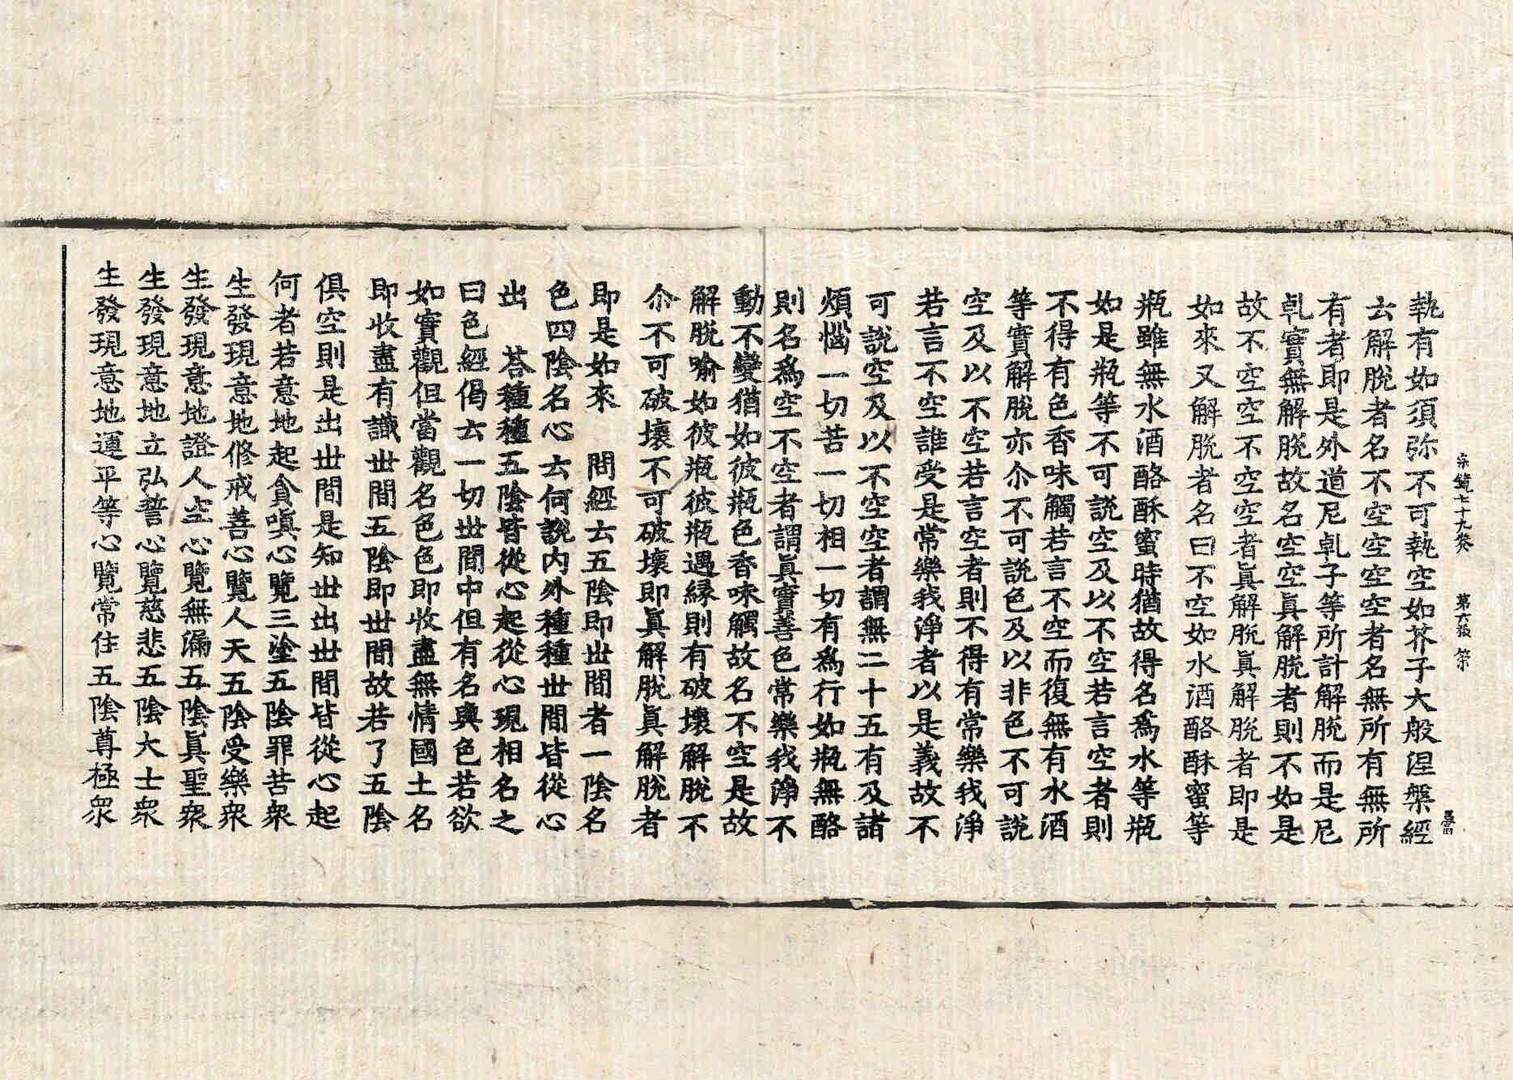 宗鏡七十九卷 第六張 綮
執有如須弥不可執空如芥子大般涅槃經
云解脫者名不空空空空者名無所有無所
有者即是外道尼乹子等所計解脫而是尼
乹實無解脫故名空空真解脫者則不如是
故不空空不空空者真解脫真解脫者即是
如來又解脫者名曰不空如水酒酪酥蜜等
瓶雖無水酒酪酥蜜時猶故得名為水等瓶
如是瓶等不可說空及以不空若言空者則
不得有色香味觸若言不空而復無有水酒
等實解脫亦尒不可說色及以非色不可說
空及以不空若言空者則不得有常樂我淨
若言不空誰受是常樂我淨者以是義故不
可說空及以不空空者謂無二十五有及諸
煩惱一切苦一切相一切有為行如瓶無酪
則名為空不空者謂真實善色常樂我淨不
動不變猶如彼瓶色香味觸故名不空是故
解脫喻如彼瓶彼瓶遇緣則有破壞解脫不
尒不可破壞不可破壞即真解脫真解脫者
即是如來 問經云五陰即世間者一陰名
色四陰名心云何說內外種種世間皆從心
出 荅種種五陰皆從心起從心現相名之
曰色經偈云一切世間中但有名與色若欲
如實觀但當觀名色色即收盡無情國土名
即收盡有識世間五陰即世間故若了五陰
俱空則是出世間是知世出世間皆從心起
何者若意地起貪嗔心覽三塗五陰罪苦衆
生發現意地修戒善心覽人天五陰受樂衆
生發現意地證人空心覽無漏五陰真聖衆
生發現意地立弘誓心覽慈悲五陰大士衆
生發現意地運平等心覽常住五陰尊極衆